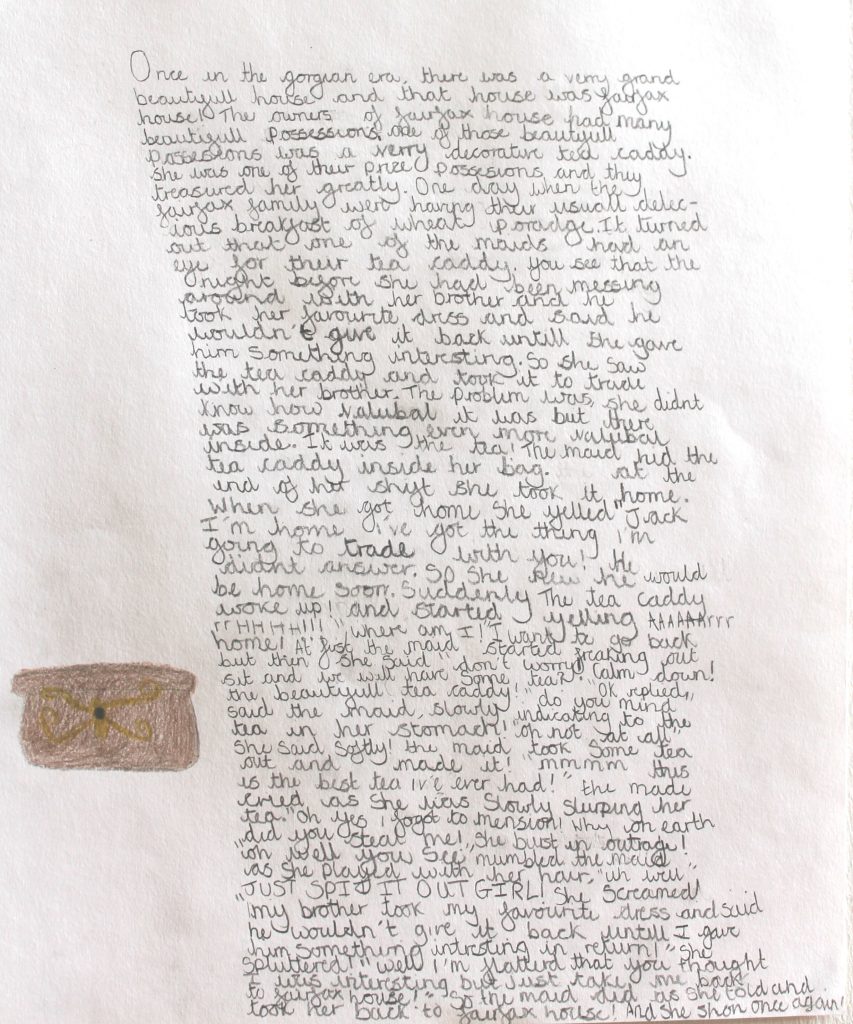 Once in the gorgian era, there was a verry grand
beautyfull house and that house was fairfax
house! The owners of fairfax house had many
beautyfull possessions, one of those beautyfull
possesions was a verry decorative tea caddy.
she was one of their prize possesions and they
treasured her greatly. One day when the
fairfax family were having their usuall delec-
ious breakfast of wheat poradge. It turned
out that one of the maids had an
eye for their tea caddy. you see that the
night before she had been messing
around with her brother and he
took her favourite dress and said he
wouldn't give it back untill she gave
him something interesting. So she saw
the tea caddy and took it to trade
with her brother. The problem was, she didnt
know how valubal it was but there
was something even more valubal
inside. It was the tea! The maid hid the
tea caddy inside her bag. at the
end of her shift she took it home.
When she got home she yelled "Jack
I'm home i've got the thing i'm
going to trade with you! He
didnt answer. So she knew he would
be home soon. Suddenly The tea caddy
woke up! and started yelling AAAAAArrr
rrHHHH!!! "where am I! I want to go back
home! At first the maid started freaking out
but then she said "don't worry! Calm down!
sit and we will have some tea? OK replied,
the beautyfull tea caddy!" do you mind"
said the maid, slowly indicating to the
tea in her stomach! "oh not at all"
she said softly! the maid took some tea
out and made it! "mmmm this
is the best tea iv'e ever had!" the made
cried as she was slowly slurping her
tea. "Oh yes i fogot to mension! Why on earth
"did you steal me! She bust in outrage!
"oh well you see" mumbled the maid
as she played with her hair, "uh well"
"JUST SPIT IT OUT GIRL! She screamed!
"my brother took my favourite dress and said
he wouldn't give it back untill I gave
him something intresting in return!" She
spluttered! "well I'm flatterd that you thought
I was interesting but just take me back
to fairfax house!" So the maid did as she told and
took her back to fairfax house! And she shon once again!